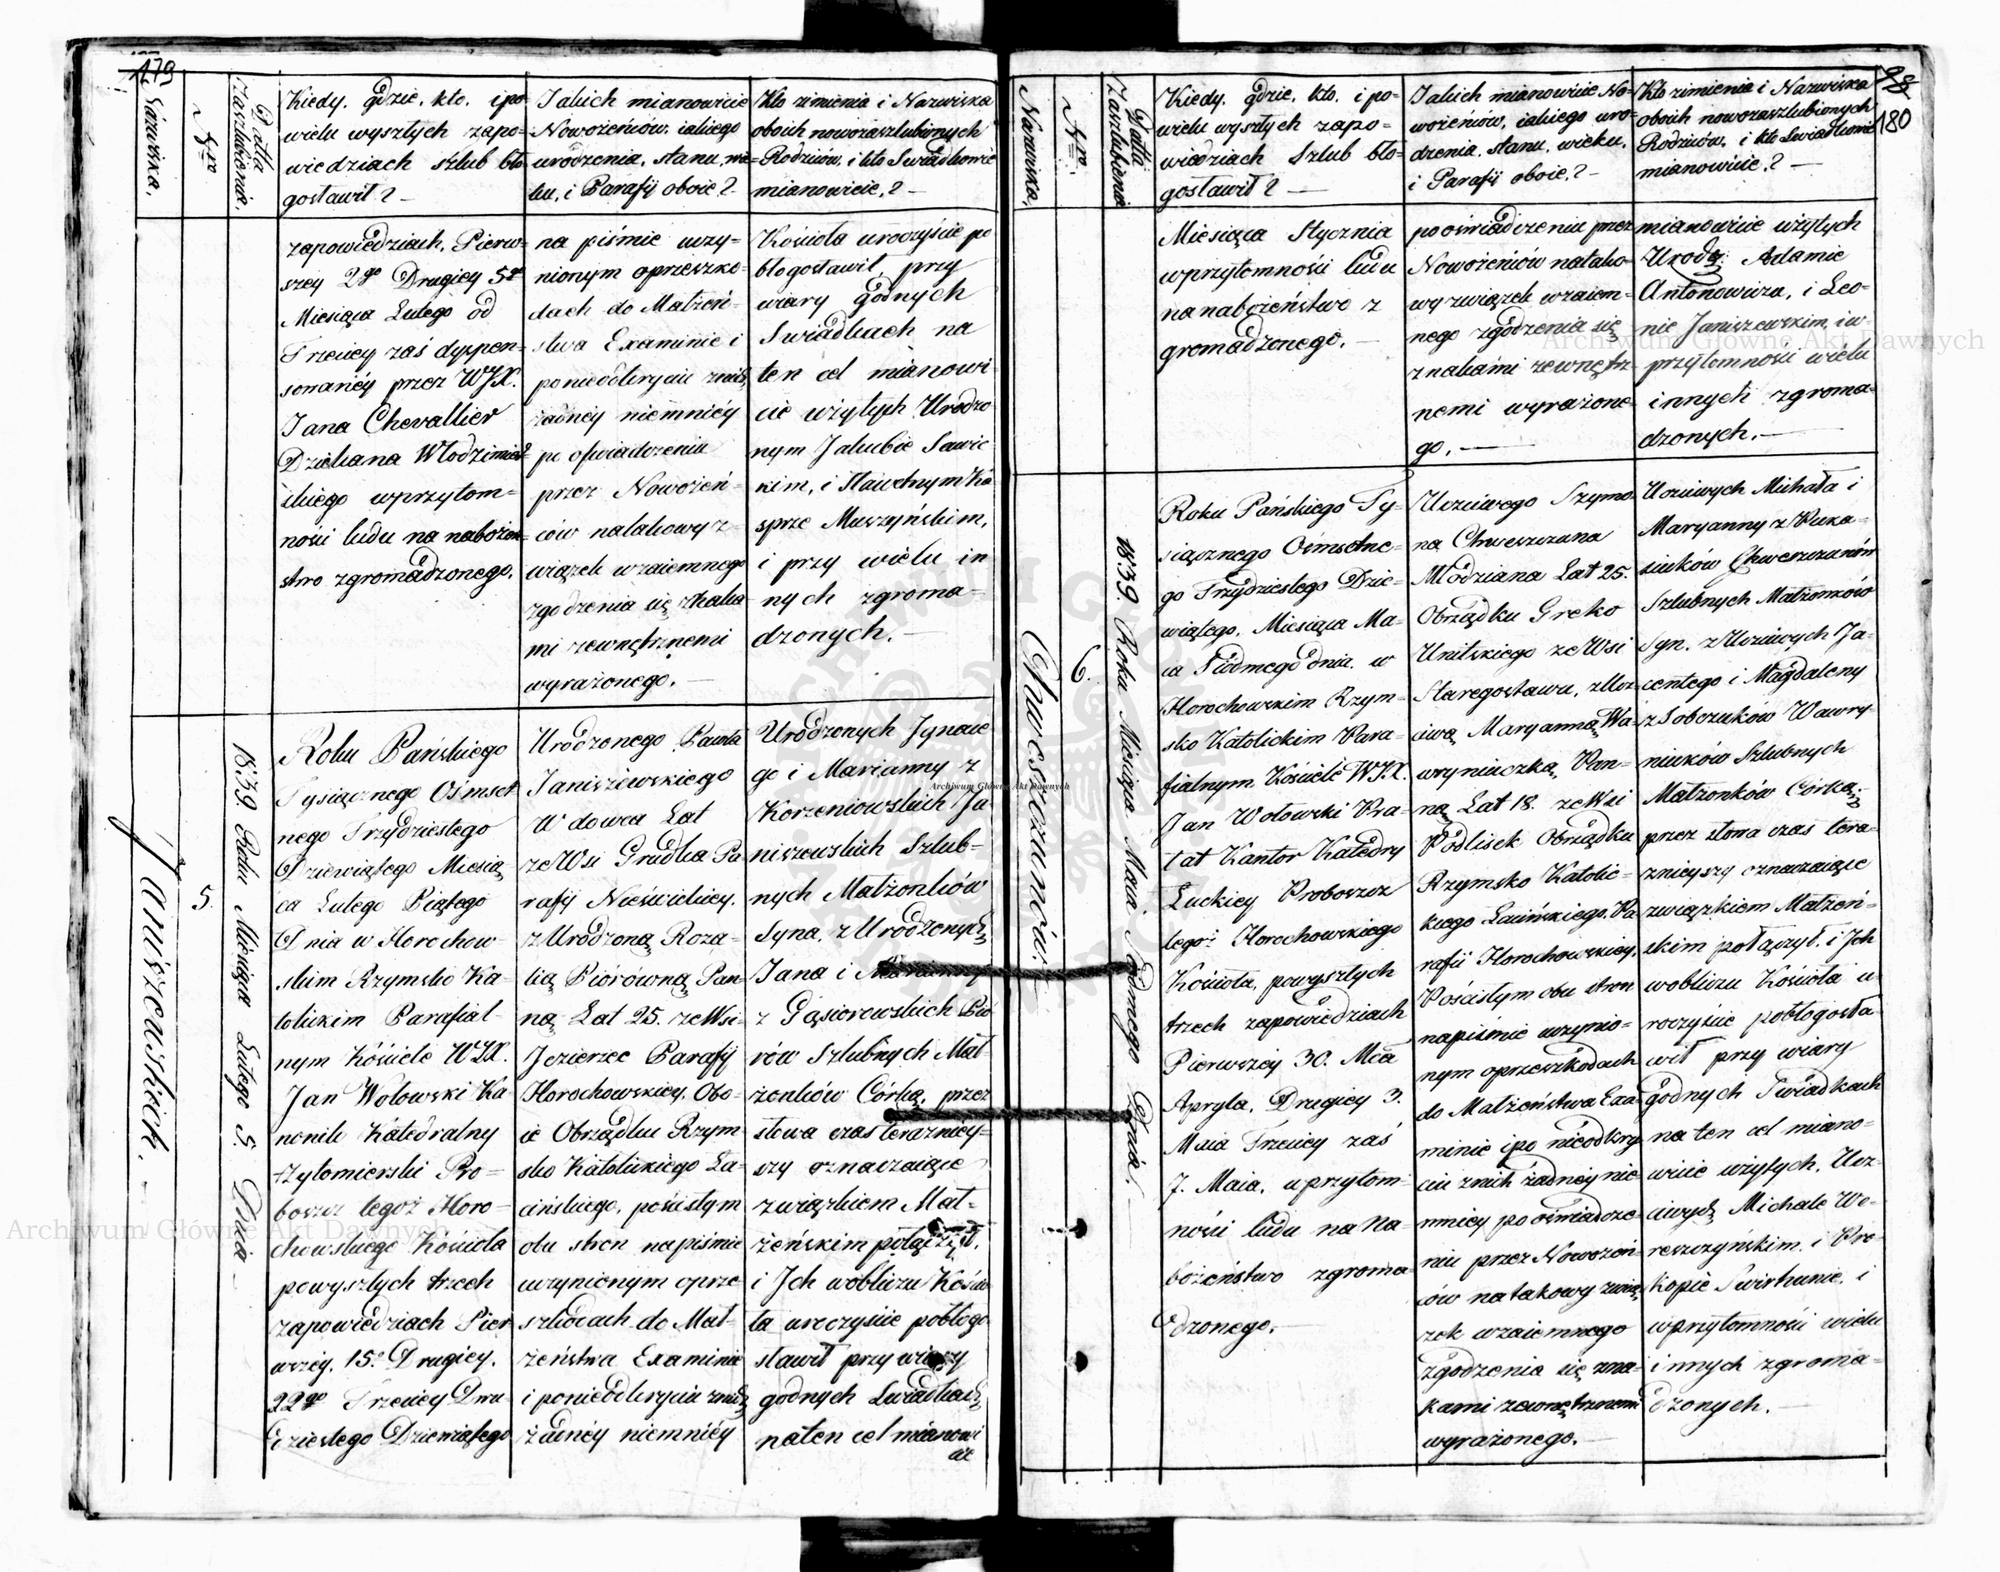 179
Nazwiska.
Nro
Datta
Zaszlubienia.
Kiedy, gdzie, kto, i po
wielu wyszłych zapo-
wiedziach szlub bło
gosławił? —
Jakich mianowicie
Nowożeńców, iakiego
urodzenia, stanu, wie
ku, i Parafij oboie? —
Kto zimienia i Nazwiska
oboich nowozaszlubionych
Rodziców, i kto Swiadkowie
mianowicie,? —
zapowiedziach, Pierw-
szey 2go Drugiey 5go
Miesiąca Lutego od
Trzeciey zaś dyspen-
sowanéy przez WJX.
Jana Chevallier
Dziekana Włodzimier
skiego wprzytom-
ności ludu na nabożeń-
stwo zgromadzonego.
na piśmie uczy-
nionym oprzeszko-
dach do Małżeń-
stwa Examinie i
ponieodkryciu znich
żadnéy niemniéy
po oświadczeniu
przez Nowożeń-
ców natakowy z-
wiązek wzaiemnego
zgodzenia się znaka
mi zewnętrznemi
wyrażonego. —
Kościoła uroczyście po
błogosławił, przy
wiary godnych
Swiadkach na
ten cel mianowi
cie użytych Urodzo
nym Jakubie Sawic
kim, i Sławetnym Ka
sprze Muszyńskim,
i przy wielu in
nych zgroma-
dzonych. —
Janiszewskich. —
5.
1839 Roku Miesiąca Lutego 5. Dnia —
Roku Pańskiego
Tysiącznego Ośmset
nego Trzydziestego
Dziewiątego Miesią
ca Lutego Piątego
Dnia w Horochow-
skim Rzymsko Ka-
tolickim Parafial-
nym Kościele WJX.
Jan Wołowski Ka
nonik Katedralny
Żytomierski Pro-
boszcz tegoż Horo-
chowskiego Kościoła
powyszłych trzech
zapowiedziach Pier
wszéy. 15o Drugiey.
22go Trzeciey Dwu
dziestego Dziewiątego
Urodzonego Pawła
Janiszewskiego
Wdowca Lat
ze Wsi Grudka Pa
rafij Nieświcikiey.
z Urodzoną Roza-
lią Piórówną Pan
ną Lat 25. ze Wsi-
Jezierzec Parafij
Horochowskiey. Obo-
ie Obrządku Rzym
sko Katolickiego Ła-
cińskiego, pościsłym
obu stron napiśmie
uczynionym oprze
szkodach do Mał-
żeństwa Examinie
i ponieodkryciu znich
żadnéy niemniéy
Urodzonych Jgnace
go i Marianny z
Korzeniowskich Ja
niszewskich Szlub-
nych Małżonków
Syna, z Urodzonych
Jana i Marianny
z Gąsiorowskich Pió
rów Szlubnych Mał-
żonków Córką, przez
słowa czas teraźniey-
szy oznaczaiące
związkiem Mał-
żeńskim połączył,
i Jch wobliczu Kościo
ła uroczyście pobłogo
sławił przy wiary
godnych Swiadkach
naten cel mianowi
cie
98
180
Nazwiska.
Nro
Datta
Zaszlubienia
Kiedy, gdzie, kto, i po-
wielu wyszłych zapo-
wiedziach Szlub bło-
gosławił? —
Jakich mianowicie No-
wożeńców, iakiego uro-
dzenia, stanu, wieku,
i Parafij oboie,? —
Kto zimienia i Nazwiska
oboich nowozaszlubionych
Rodziców, i kto Swiadkowie
mianowicie,? —
Miesiąca Stycznia
wprzytomności ludu
nanabożeństwo z
gromadzonego. —
pooświadczeniu przez
Nowożeńców natako-
wy związek wzaiem-
nego zgodzenia się
znakami zewnętrz-
nemi wyrażone-
go. —
mianowicie użytych
Urodz: Adamie
Antonowiczu, i Leo-
nie Janiszewskim, iw-
przytomności wielu
innych zgroma-
dzonych. —
Chweszczunów.
6.
1839. Roku Miesiąca Maia Siódmego Dnia.
Roku Pańskiego Ty-
siącznego Ośmsetne-
go Trzydziestego Dzie-
wiątego, Miesiąca Ma-
ia Siódmego dnia w
Horochowskim Rzym-
sko Katolickim Para-
fialnym Kościele WJX.
Jan Wołowski Pra-
łat Kantor Katedry
Łuckiey Proboszcz
tegoż Horochowskiego
Kościoła, powyszłych
trzech zapowiedziach
Pierwszey 30. Mca
Apryla, Drugiey 3.
Maia Trzeciey zaś
7. Maia, uprzytom-
ności ludu na Na-
bożeństwo zgroma-
dzonego. —
Uczciwego Szymo
na Chweszczuna
Młodziana Lat 25.
Obrządku Greko
Unitskiego ze Wsi
Staregostawu, z Ucz-
ciwą Maryanną Wa-
wryniuczką, Pan-
ną Lat 18. ze Wsi
Podlisek Obrządku
Rzymsko Katolic-
kiego Łacińskiego, Pa-
rafii Horochowskiey,
Pościsłym obu stron
napiśmie uczynio-
nym oprzeszkodach
do Małżeństwa Exa-
minie i po nieodkry-
ciu znich żadney nie-
mniey po oświadcze-
niu przez Nowożeń-
ców natakowy zwią-
zek wzaiemnego
zgodzenia się zna-
kami zewnętrznemi
wyrażonego. —
Uczciwych Michała i
Maryanny z
Chweszczunów
Szlubnych Małżonków
Syn, z Uczciwych Ja-
centego i Magdaleny
z Sobczuków Wawry-
niuków Szlubnych
Małżonków Córką,
przez słowa czas tera-
znieyszy oznaczaiące
związkiem Małżeń-
skim połączył, i Jch
wobliczu Kościoła u-
roczyście pobłogosła-
wił przy wiary
godnych Swiadkach
na ten cel miano-
wicie użytych, Ucz-
ciwych Michale Wo-
reszczyńskim, i Pro-
kopie Swirhunie, i
wprzytomności wielu
innych zgroma-
dzonych. —
Archiwum Główne Akt Dawnych
Archiwum Główne Akt Dawnych
Archiwum Główne Akt Dawnych